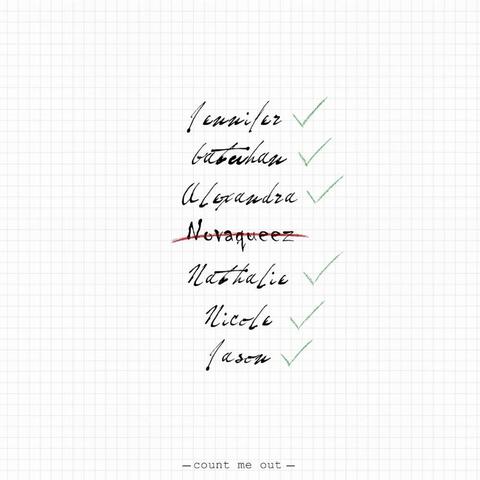 Jennifer
batuhan
Alexandra
Novaqueez
Nathalie
Nicole
Jason
—count me out—